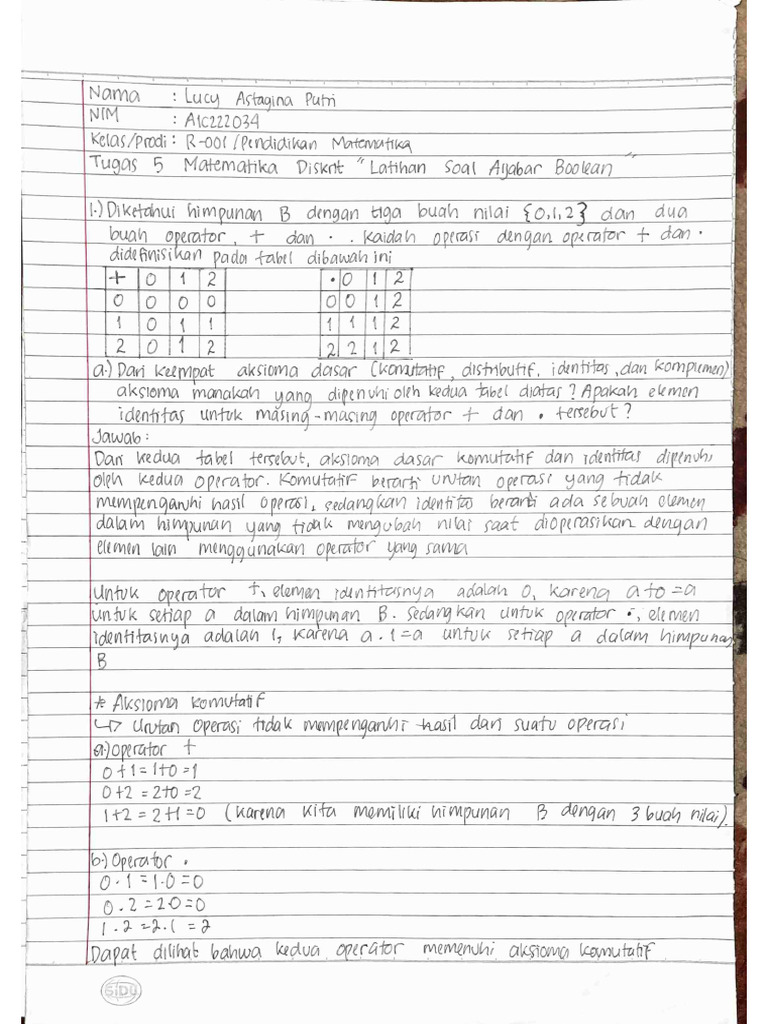 Nama : Lucy Astagina Putri
NIM : A1C222034
Kelas/Prodi : R-001/Pendidikan Matematika
Tugas 5 Matematika Diskrit "Latihan Soal Aljabar Boolean"
1.) Diketahui himpunan B dengan tiga buah nilai {0,1,2} dan dua
buah operator, + dan · . Kaidah operasi dengan operator + dan ·
didefinisikan pada tabel dibawah ini
+ 0 1 2 · 0 1 2
0 0 0 0 0 0 1 2
1 0 1 1 1 1 1 2
2 0 1 2 2 2 1 2
a.) Dari keempat aksioma dasar (komutatif, distributif, identitas, dan komplemen)
aksioma manakah yang dipenuhi oleh kedua tabel diatas? Apakah elemen
identitas untuk masing-masing operator + dan · tersebut?
Jawab:
Dari kedua tabel tersebut, aksioma dasar komutatif dan identitas dipenuhi
oleh kedua operator. Komutatif berarti urutan operasi yang tidak
mempengaruhi hasil operasi, sedangkan identitas berarti ada sebuah elemen
dalam himpunan yang tidak mengubah nilai saat dioperasikan dengan
elemen lain menggunakan operator yang sama
Untuk operator +, elemen identitasnya adalah 0, karena a+0=a
untuk setiap a dalam himpunan B. Sedangkan untuk operator ·, elemen
identitasnya adalah 1, karena a·1=a untuk setiap a dalam himpunan
B
* Aksioma komutatif
↳ Urutan Operasi tidak mempengaruhi hasil dari suatu operasi
a.) operator +
0+1=1+0=1
0+2=2+0=2
1+2=2+1=0 (karena kita memiliki himpunan B dengan 3 buah nilai).
b.) Operator ·
0·1=1·0=0
0·2=2·0=0
1·2=2·1=2
Dapat dilihat bahwa kedua operator memenuhi aksioma komutatif
SIDU